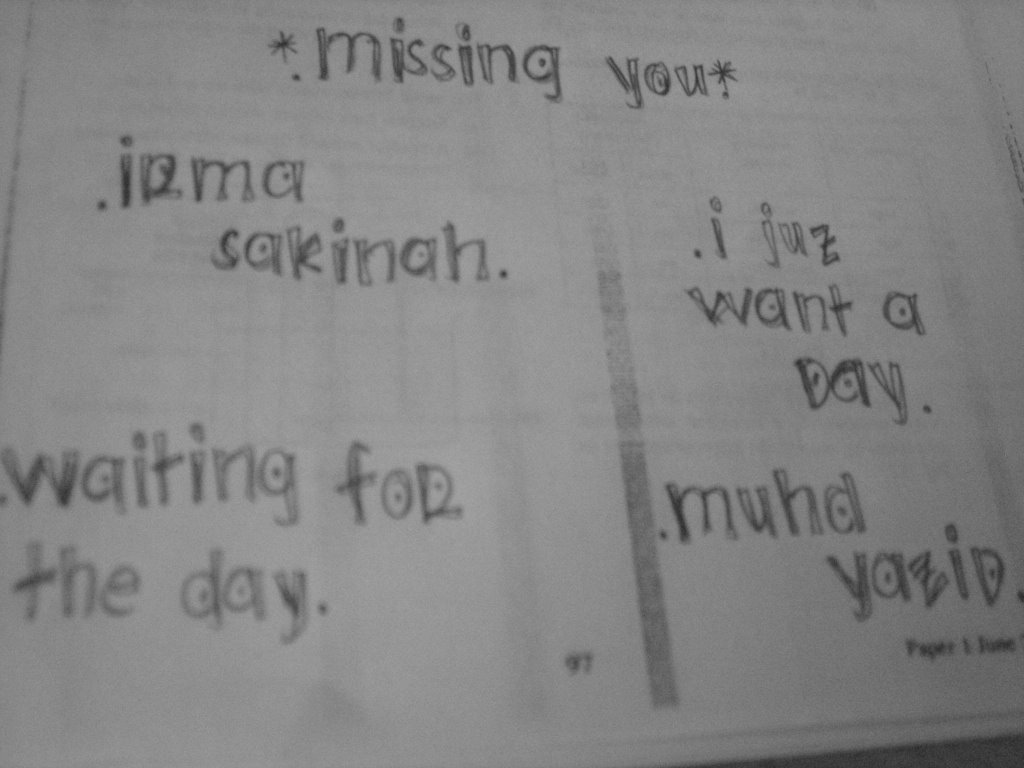 *.missing you*
.iRma
sakinah.
.waiting foR
the day.
.i juz
want a
Day.
.muhd
yaziD.
97
Paper 1: June